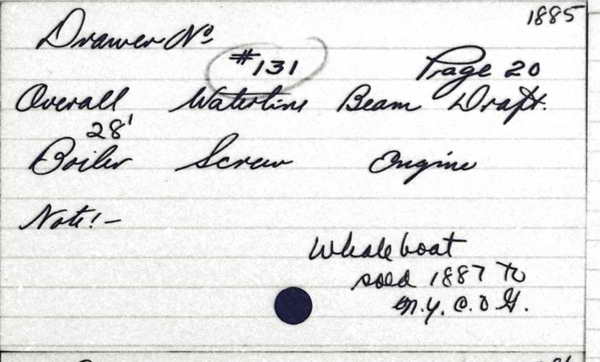 1885
Drawer No.
#131
Page 20
Overall Waterline Beam Draft.
28'
Boiler Screw Engine
Note! -
Whale boat
sold 1887 to